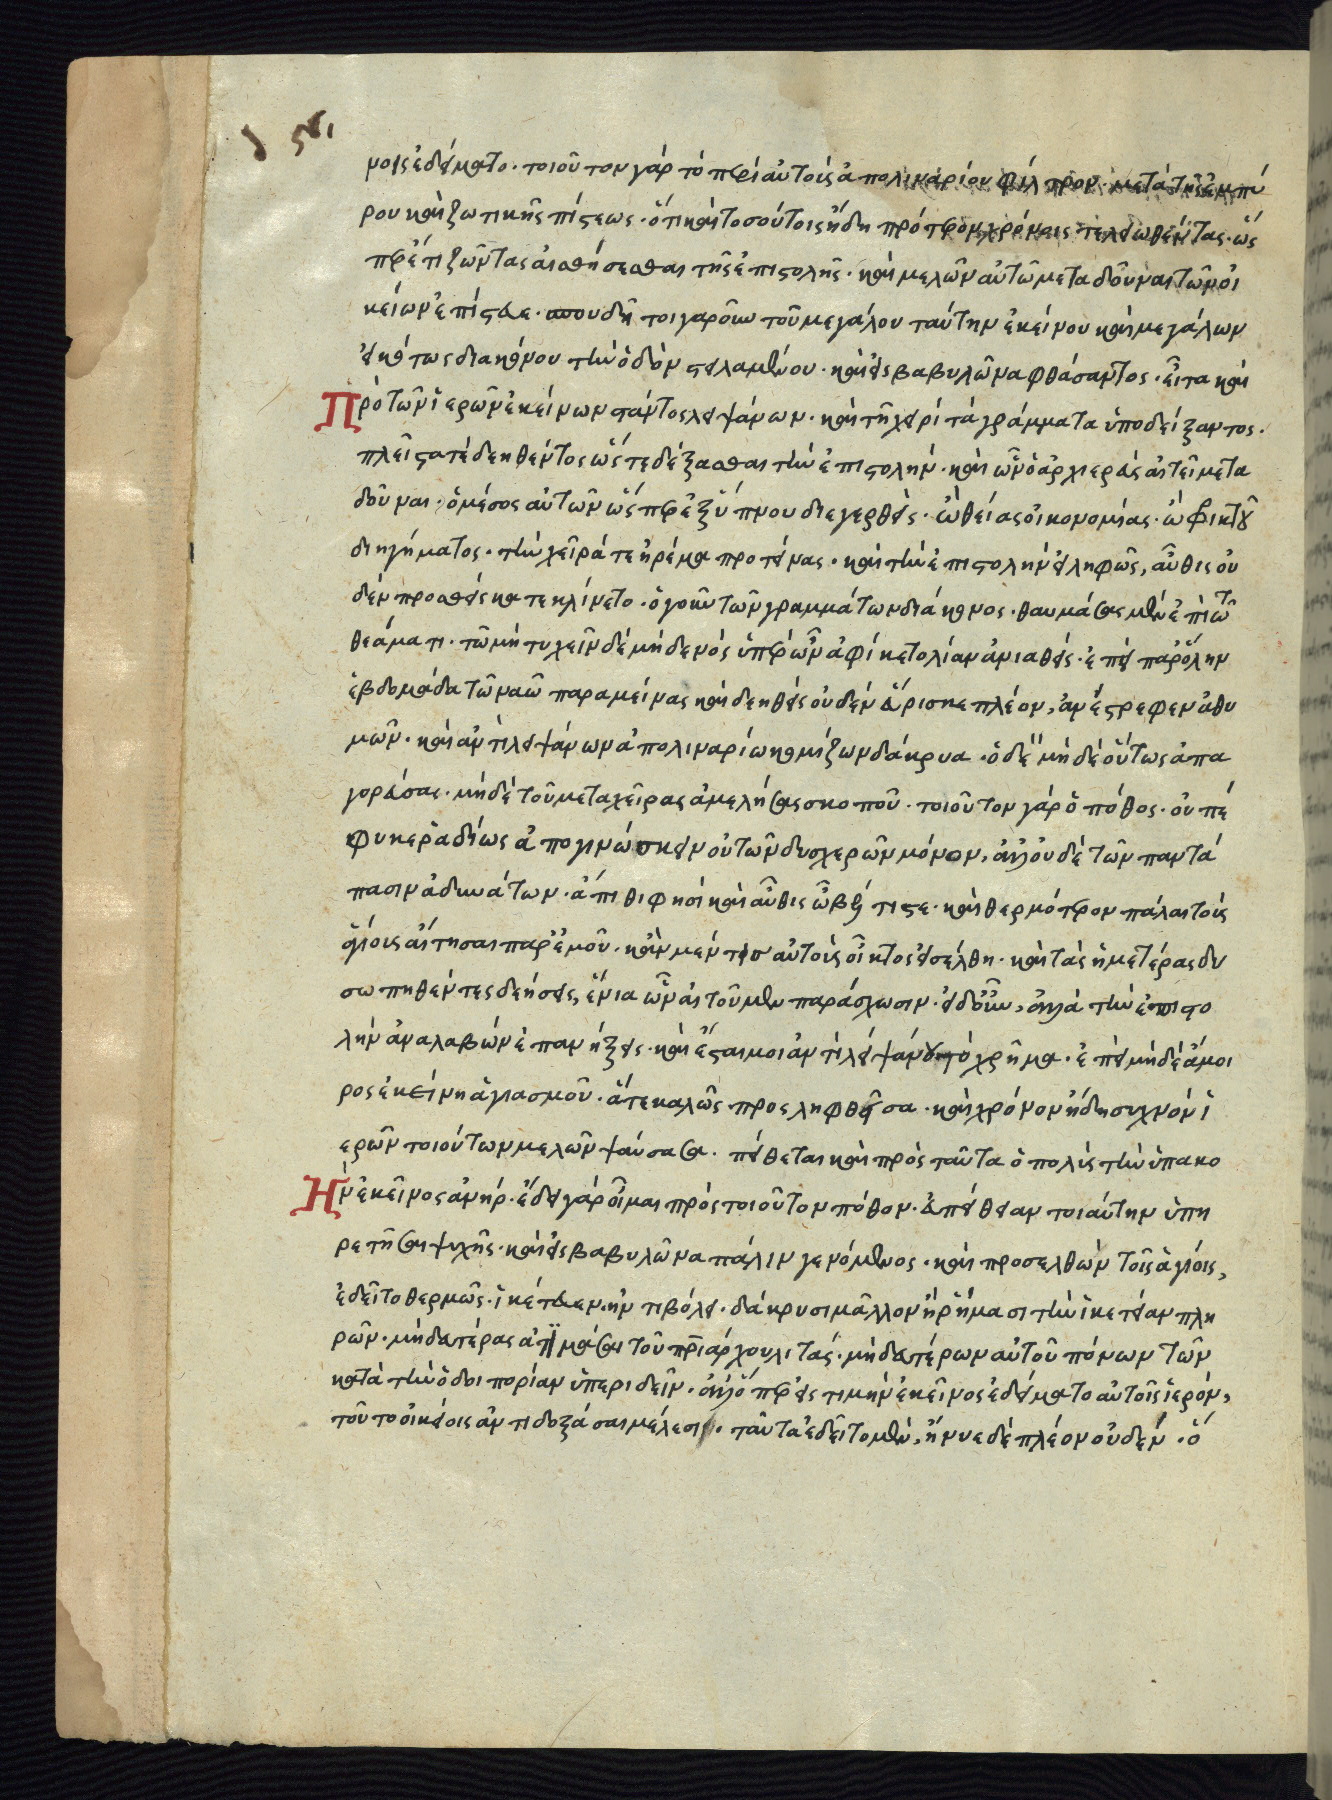 μοις ἐδείματο · τοιοῦτον γὰρ τὸ περὶ αὐτοὺς ἀπολιναρίου φίλτρον · μετὰ τῆς ἐμπύ
ρου καὶ ζωτικῆς πίστεως · ὅτι καὶ τοσούτοις ἤδη πρότερον χρόνοις τελειωθέντας · ὡς
περ ἔτι ζῶντας αἰσθήσεσθαι τῆς ἐπιστολῆς · καὶ μελῶν αὐτῶ μεταδοῦναι τῶν οἰ
κείων ἐπίστευε · σπουδῆ τοιγαροῦν τοῦ μεγάλου ταύτην ἐκείνου καὶ μεγάλων
εἰκότως διακόνου τὴν ὁδὸν στειλαμένου · καὶ εἰς βαβυλῶνα φθάσαντος · εἶτα καὶ
Πρὸ τῶν ἱερῶν ἐκείνων στάντος λειψάνων · καὶ τῆ χειρὶ τὰ γράμματα ὑποδείξαντος ·
πλεῖστά τε δεηθέντος ὥστε δέξασθαι τὴν ἐπιστολήν · καὶ ὧν ὁ ἀρχιερεὺς αἰτεῖ μετα
δοῦναι · ὁ μέσος αὐτῶν ὥσπερ ἐξ ὕπνου διεγερθείς · ὢ θείας οἰκονομίας · ὢ φρικτοῦ
διηγήματος · τὴν χεῖρά τε ἠρέμα προτείνας · καὶ τὴν ἐπιστολὴν εἰληφώς, αὖθις οὐ
δὲν προσθεὶς κατεκλίνετο · ὁ γοῦν τῶν γραμμάτων διάκονος · θαυμάσας μὲν ἐπὶ τῶ
θεάματι · τῶ μὴ τυχεῖν δὲ μηδενὸς ὑπὲρ ὧν ἀφίκετο λίαν ἀνιαθείς · ἐπεὶ παρ' ὅλην
ἑβδομάδα τῶ ναῶ παραμείνας καὶ δεηθεὶς οὐδὲν εὕρισκε πλέον, ἀνέστρεφεν ἀθυ
μῶν · καὶ ἀντὶ λειψάνων ἀπολιναρίω κομίζων δάκρυα · ὁ δὲ μηδὲ οὕτως ἀπα
γορεύσας · μηδὲ τοῦ μετὰ χεῖρας ἀμελήσας σκοποῦ · τοιοῦτον γὰρ ὁ πόθος · οὐ πέ
φυκε ῥαδίως ἀπογινώσκειν οὐ τῶν δυσχερῶν μόνον, ἀλλ' οὐδὲ τῶν παντά
πασιν ἀδυνάτων · ἄπιθι φησὶ καὶ αὖθις ὦ βέλτιστε · καὶ θερμότερον πάλαι τοὺς
ἁγίους αἴτησαι παρ' ἐμοῦ · κἂν μέν τις αὐτοὺς οἶκτος εἰσέλθη · καὶ τὰς ἡμετέρας δυ
σωπηθέντες δεήσεις, ἔνια ὧν αἰτοῦμεν παράσχωσιν · εἰ δ' οὖν, ἀλλὰ τὴν ἐπιστο
λὴν ἀναλαβὼν ἐπανήξεις · καὶ ἔσται μοι ἀντὶ λειψάνου τὸ χρῆμα · ἐπεὶ μηδὲ ἄμοι
ρος ἐκείνη ἁγιασμοῦ · ἅτε καλῶς προσληφθεῖσα · καὶ χρόνον ἤδη συχνὸν ἱ
ερῶν τοιούτων μελῶν ψαύσασα · πείθεται καὶ πρὸς ταῦτα ὁ πολὺς τὴν ὑπακο
Ἡν ἐκεῖνος ἀνήρ · ἔδει γὰρ οἶμαι πρὸς τοιοῦτον πόθον · εὐπείθειαν τοιαύτην ὑπη
ρετῆσαι ψυχῆς · καὶ εἰς βαβυλῶνα πάλιν γενόμενος · καὶ προσελθὼν τοῖς ἁγίοις,
ἐδεῖτο θερμῶς · ἱκέτευεν · ἠντιβόλει · δάκρυσι μᾶλλον ἢ ῥήμασι τὴν ἱκετείαν πλη
ρῶν · μὴ δευτέρας ἀτιμάσαι τοῦ πριάρχου λιτάς · μὴ δευτέρων αὐτοῦ πόνων τῶν
κατὰ τὴν ὁδοιπορίαν ὑπεριδεῖν · ἀλλ' ὅπερ εἰς τιμὴν ἐκεῖνος ἐδείματο αὐτοῖς ἱερόν,
τοῦτο οἰκείοις ἀντιδοξάσαι μέλεσιν · ταῦτα ἐδεῖτο μέν, ἤνυε δὲ πλέον οὐδέν · ὁ